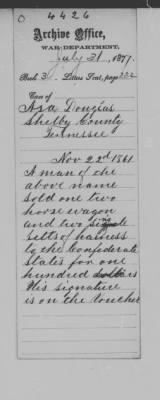 0 4426
Archive Office,
WAR DEPARTMENT,
July 31, 1877.
Book 3, Letters Sent, page 232
Case of
Asa Douglas
Shelby County
Tennessee
Nov 22d 1861
A man of the
above name
sold one two
horse wagon
and two single
setts of harness
to the Confederate
States for one
hundred dollars
His signature
is on the voucher